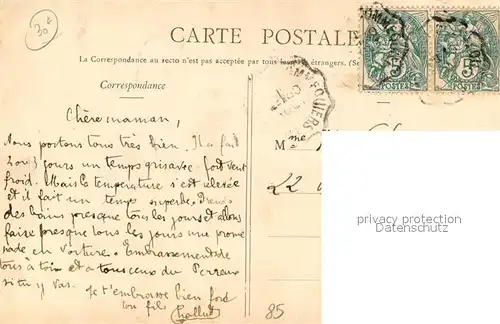 30€
CARTE POSTALE
La Correspondance au recto n'est pas acceptée par tous les étrangers. (Se
Correspondance
POSTES
POSTES
Chère maman,
Nous portons tous très bien. Il a fait
2 ou 3 jours un temps grisavec fort vent
froid. Mais la température s'est relevée
et il fait un temps superbe. Prends
des bains presque tous les jours et allons
faire presque tous les jours une prome
nade en voiture. Embrassements de
tous à toi et a tous ceux du Perreux
si tu y vas. Je t'embrasse bien fort
ton fils
Mme
22
85
privacy protection
Datenschutz